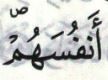 أَنفُسَهُمْ ۖ